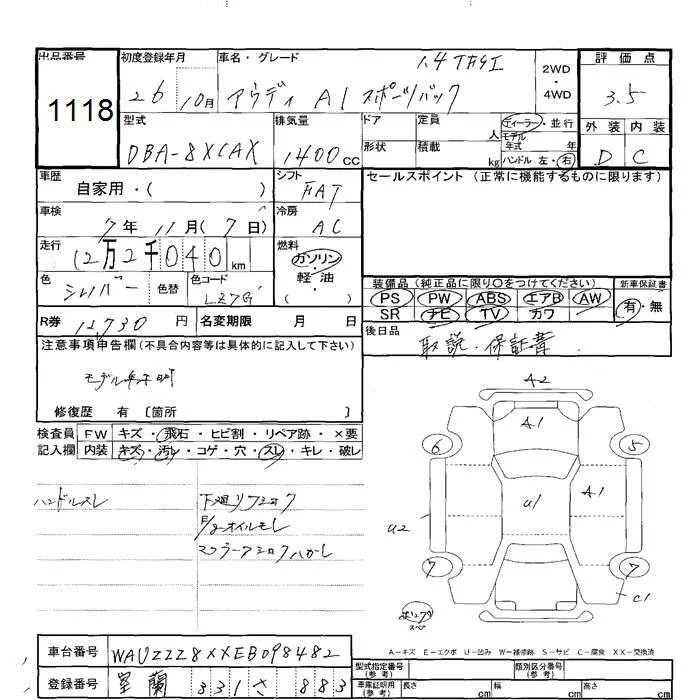 出品番号 初度登録年月 車名・グレード 1.4 TFSI 2WD 評価点
1118 26 10月 アウディ A1 スポーツバック 4WD 3.5
型式 排気量 ドア 定員 人 ディーラー・並行 外装 内装
DBA-8XCAX 1400cc 形状 積載 kg モデル年式 年 D C
ハンドル 左・右
車歴 自家用・( ) シフト FAT セールスポイント (正常に機能するものに限ります)
車検 7年 11月(7日) 冷房 AC
走行 12万2千040km 燃料 ガソリン・軽・油 ( )
色 シルバー 色替 色コード LZ7G
装備品(純正品に限り○をつけてください) 新車保証書
PS PW ABS エアB AW 有・無
SR ナビ TV カワ
R券 12,730円 名変期限 月 日 後日品
取説・保証書
注意事項申告欄(不具合内容等は具体的に記入して下さい)
モデル年不明
修復歴 有 〔箇所 〕
検査員 FW キズ・飛石・ヒビ割・リペア跡・×要
記入欄 内装 キズ・汚レ・コゲ・穴・スレ・キレ・破レ
ハンドルスレ 下廻りフショク
E/gオイルモレ
マフラーフショクハガレ
A2
A1
6 5
U1 A1
U2
7 7
C1
スペア
A-キズ E-エクボ U-凹み W-補修跡 S-サビ C-腐食 XX-交換済
車台番号 WAUZZZ8XXEB098482 型式指定番号(参考) 類別区分番号(参考)
登録番号 室蘭 331 さ 883 車庫証明用(参考) 長さ cm 幅 cm 高さ cm